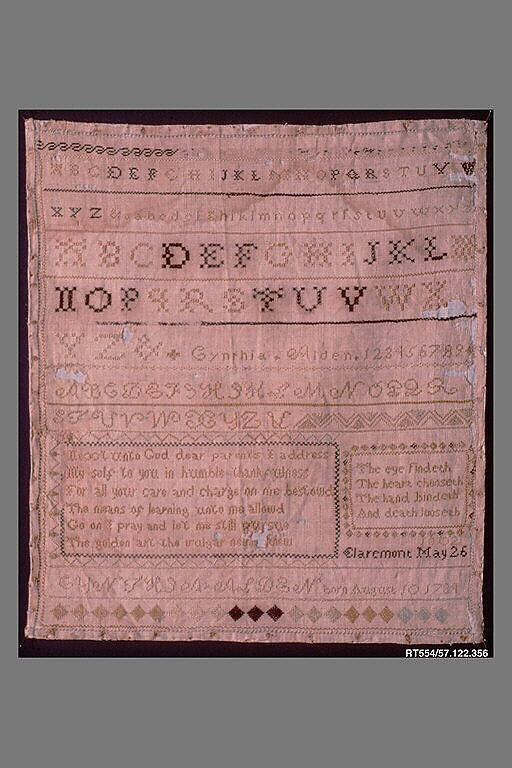 A B C D E F G H I J K L M N O P Q R S T U V W
X Y Z a b c d e f g h i k l m n o p q r ſ s t u v w x y z
A B C D E F G H I J K L M
N O P Q R S T U V W X
Y Z & Cynthia Alden. 1 2 3 4 5 6 7 8 9
A B C D E F G H I K L M N O P Q R S
T U V W X Y Z
Next unto God dear parents I address
My self to you in humble thankfulness
For all your care and charge on me bestowd
The means of learning unto me allowd
Go on I pray and let me still pursue
The golden art the vulgar never knew
The eye findeth
The heart chooseth
The hand bindeth
And death looseth
Claremont May 26
CYNTHIA ALDEN born August 10
RT554/57.122.356